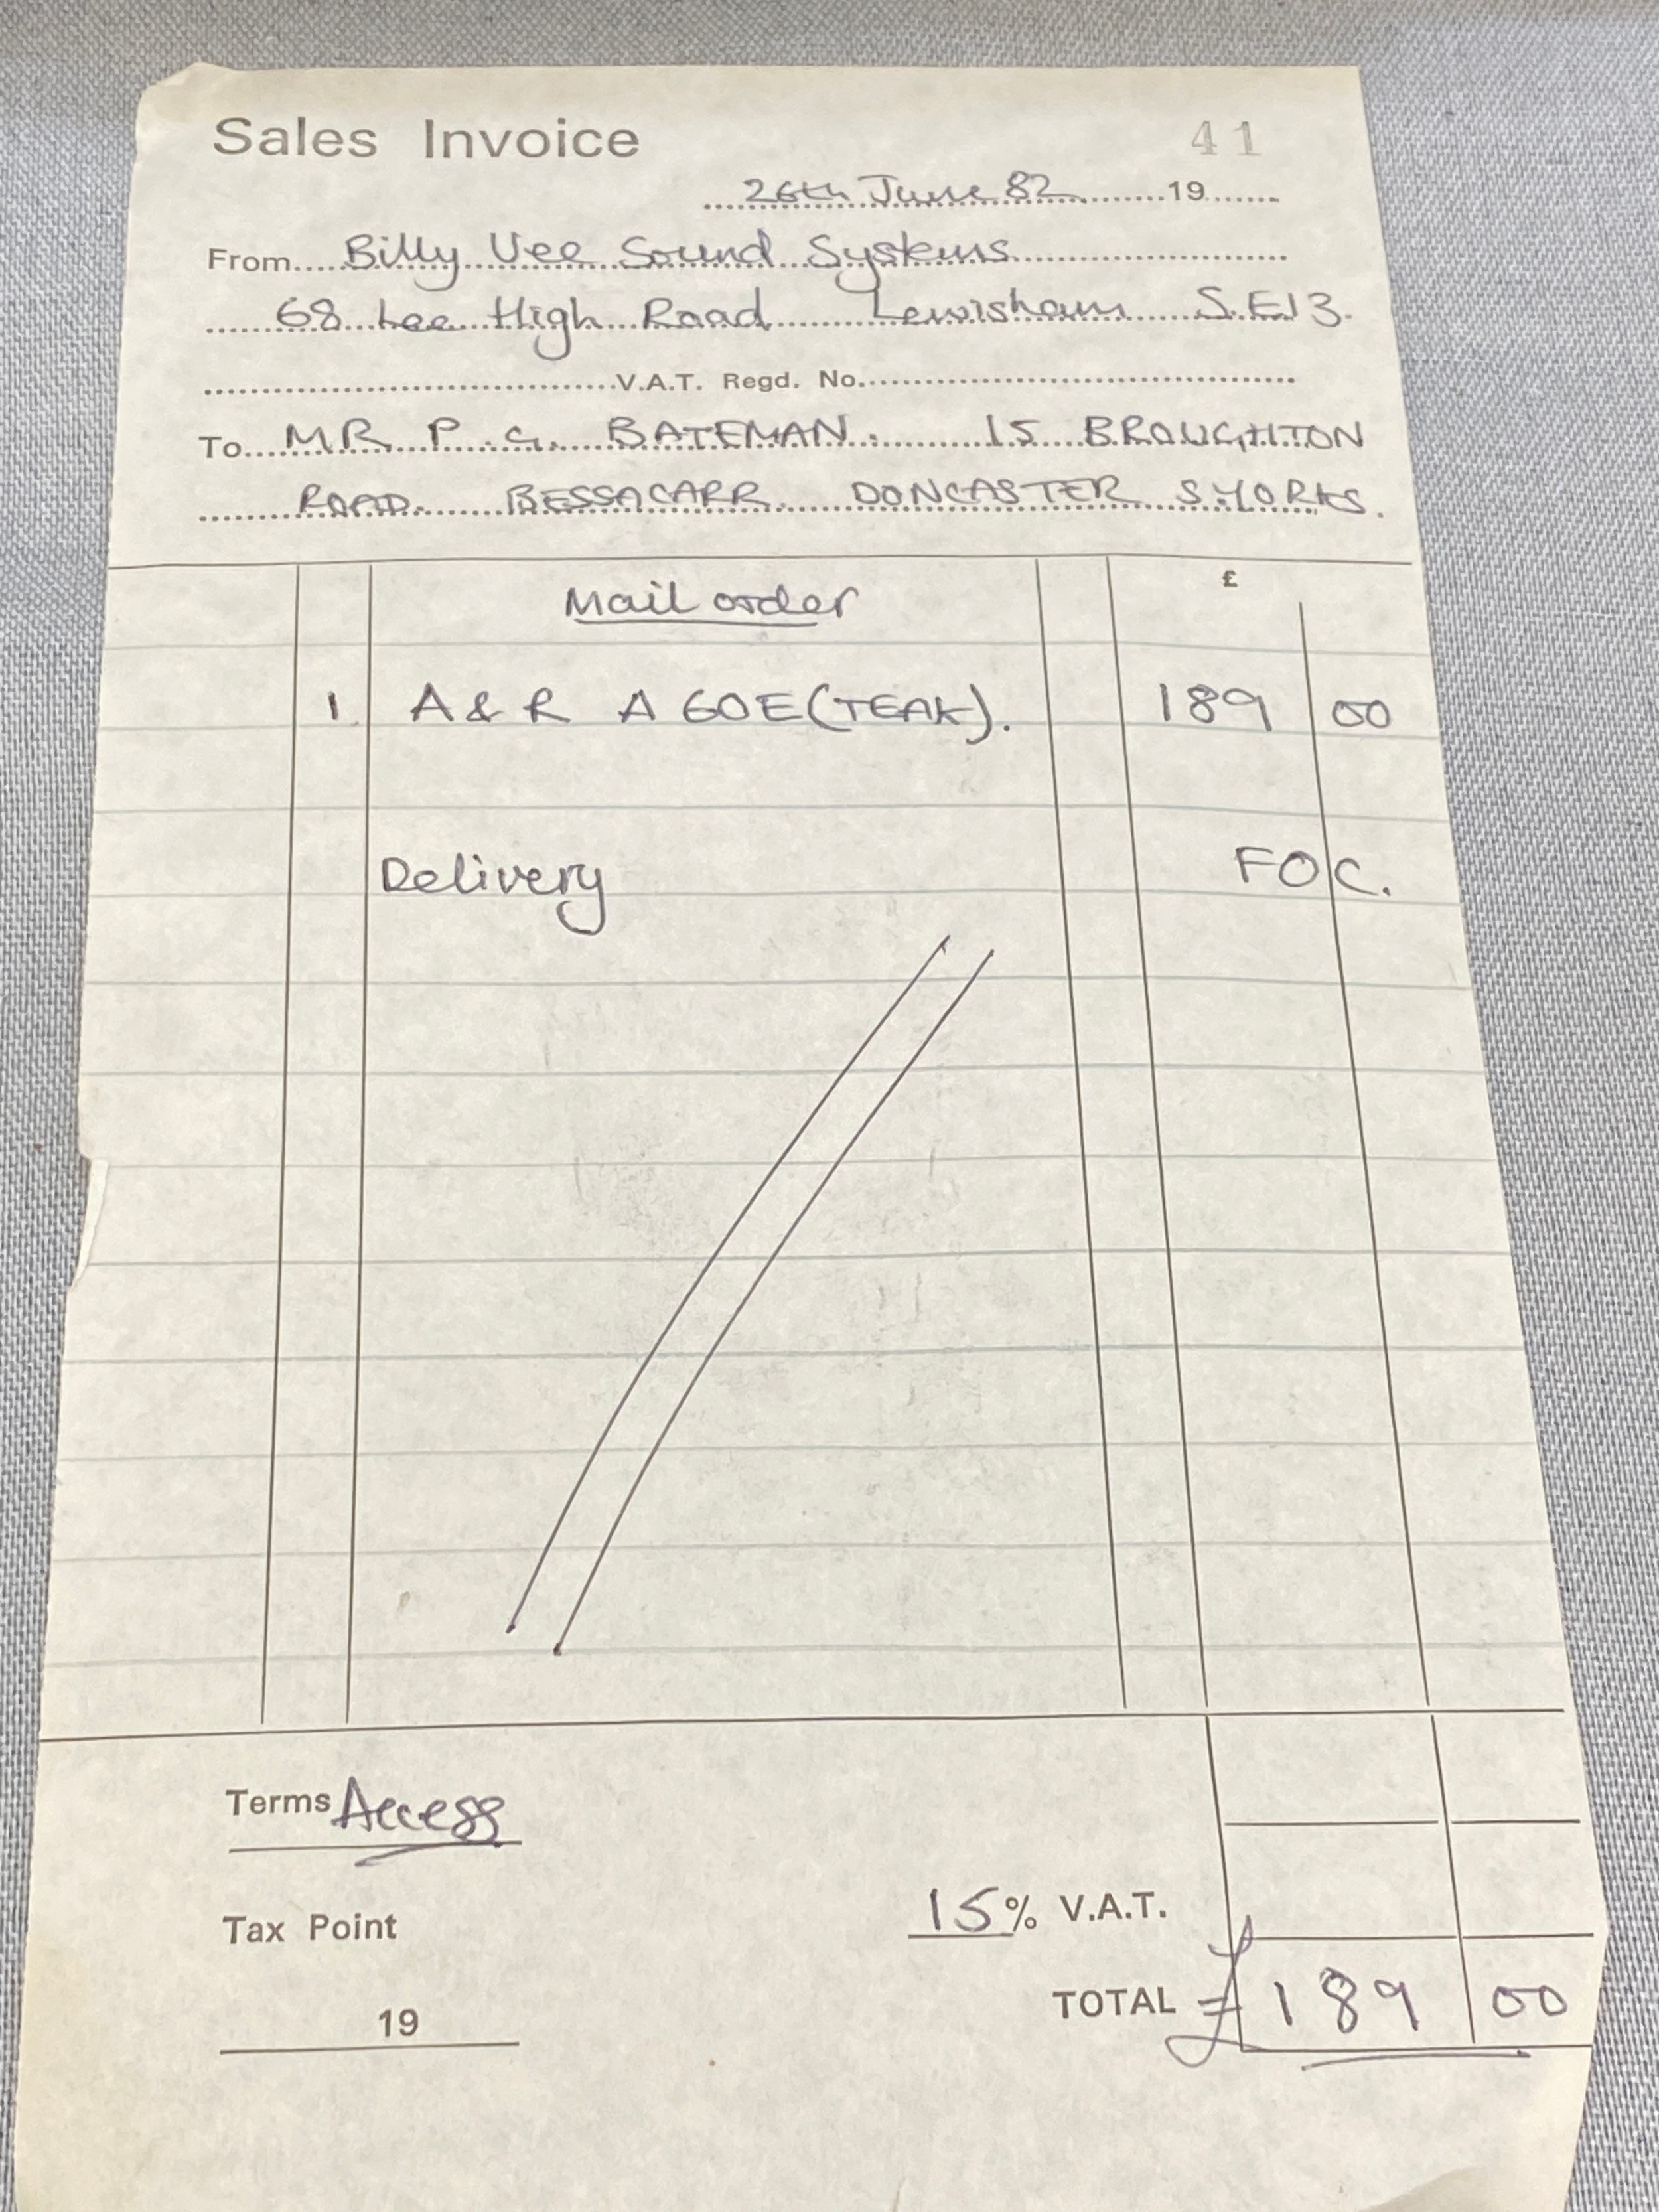 Sales Invoice 41
26th June 82 19
From Billy Vee Sound Systems
68 Lee High Road Lewisham S.E13.
V.A.T. Regd. No.
To MR P. G. BATEMAN. 15 BROUGHTON
ROAD. BESSACARR. DONCASTER S.YORKS.
Mail order £
1 A & R A 60E (TEAK). 189 00
Delivery FOC.
Terms Access
15% V.A.T.
Tax Point
TOTAL £ 189 00
19